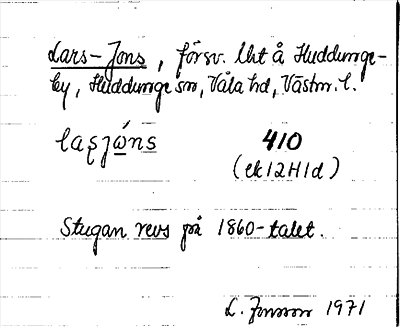 Lars-Jons, försv. lht å Huddunge-
by, Huddunge sn, Våla hd, Västm. l.
laʂjώns 410
(ek 12H1d)
Stugan revs på 1860-talet.
L. Jonsson 1971